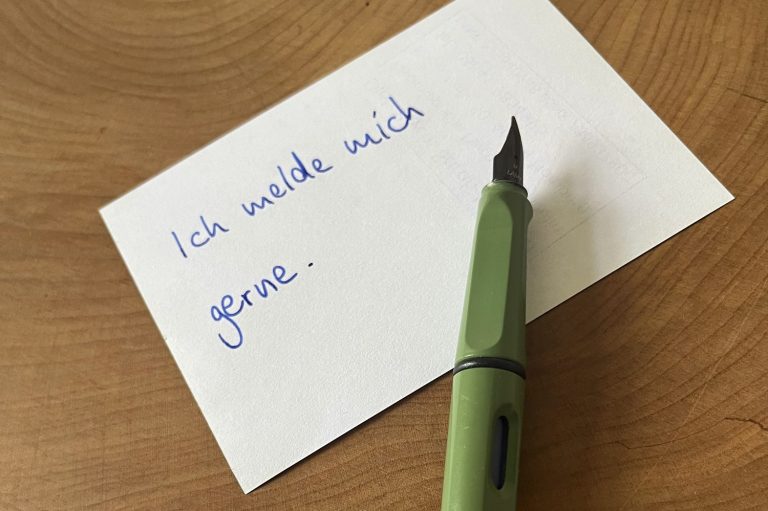 Ich melde mich
gerne.